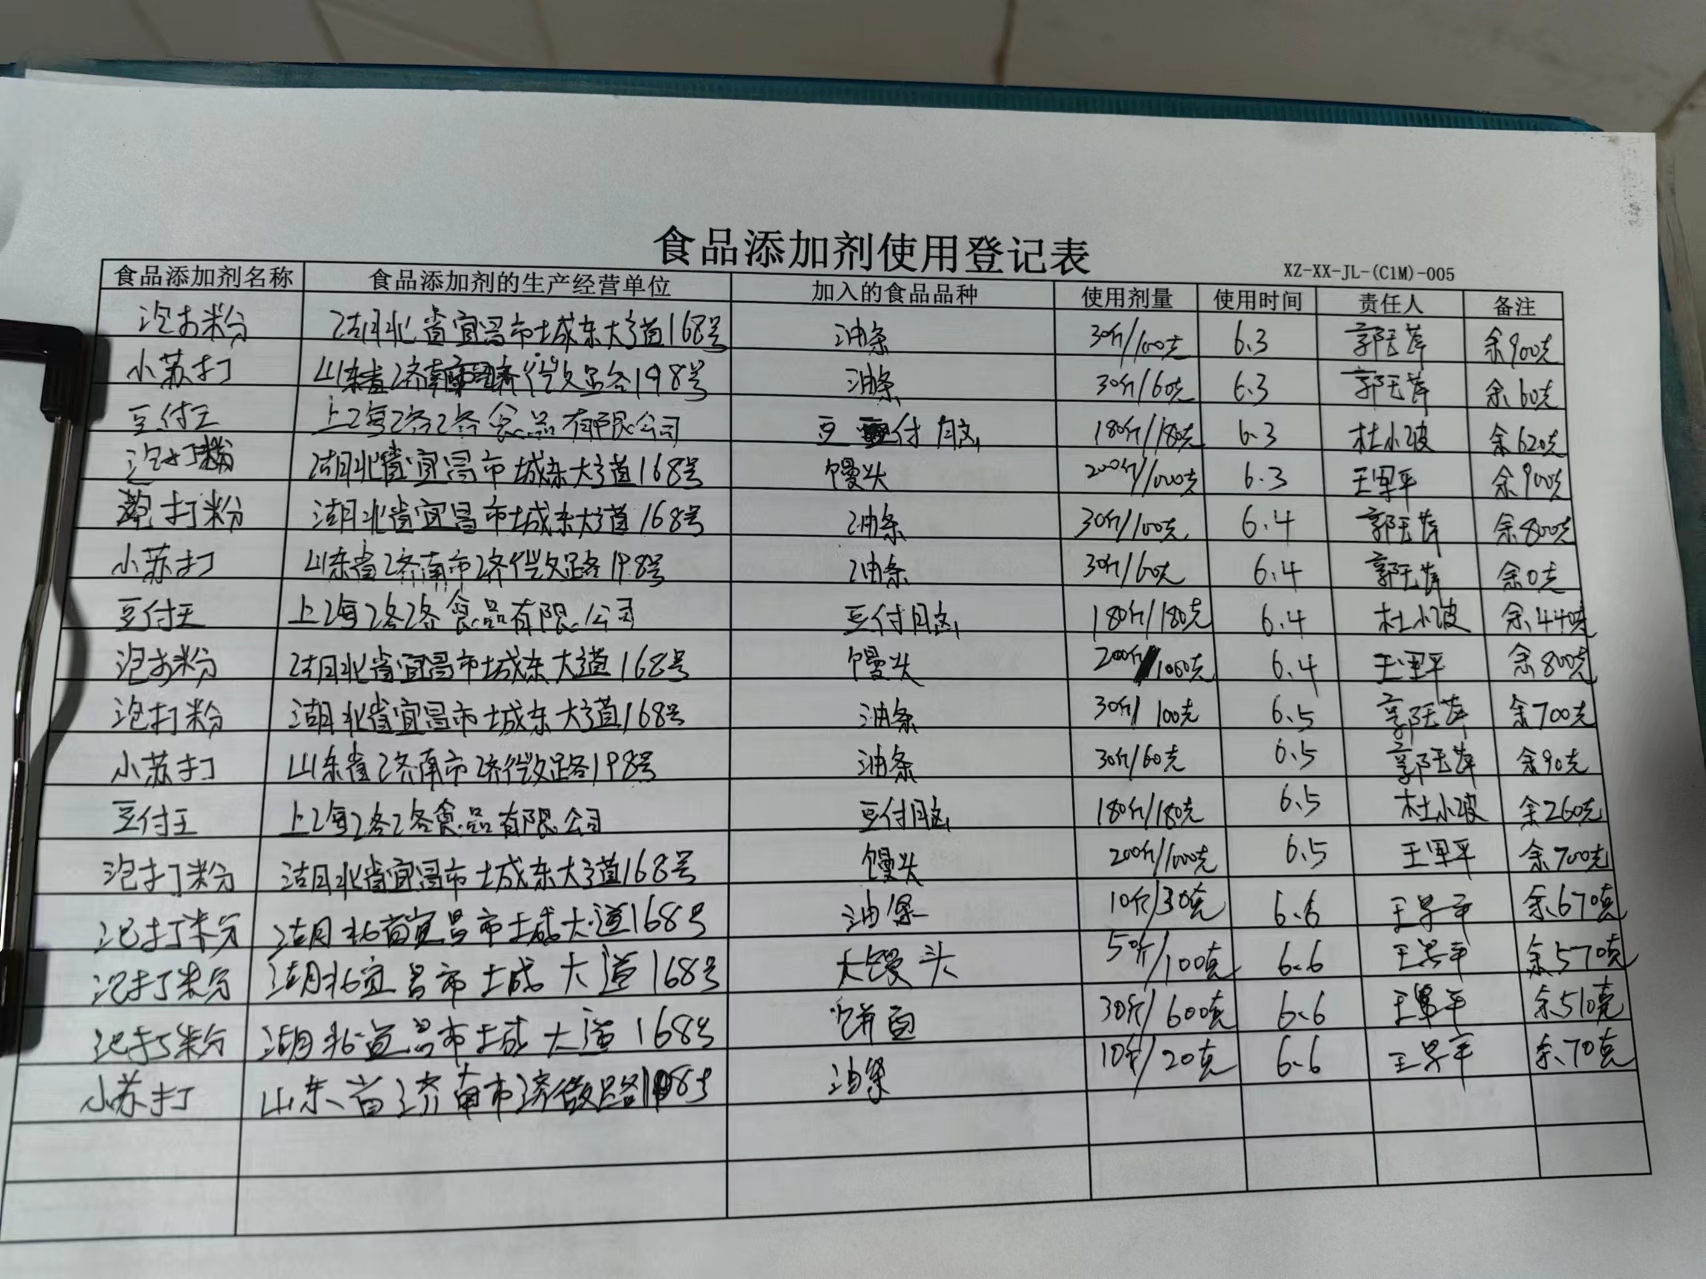 食品添加剂使用登记表
XZ-XX-JL-(C1M)-005
食品添加剂名称 食品添加剂的生产经营单位 加入的食品品种 使用剂量 使用时间 责任人 备注
泡打粉 湖北省宜昌市城东大道168号 油条 30斤/100克 6.3 郭玉萍 余900克
小苏打 山东省济南市济微路198号 油条 30斤/60克 6.3 郭玉萍 余60克
豆付王 上海 食品有限公司 豆付脑 180斤/180克 6.3 杜小波 余620克
泡打粉 湖北省宜昌市城东大道168号 馒头 200斤/1000克 6.3 王军平 余900克
泡打粉 湖北省宜昌市城东大道168号 油条 30斤/100克 6.4 郭玉萍 余800克
小苏打 山东省济南市济微路198号 油条 30斤/60克 6.4 郭玉萍 余0克
豆付王 上海 食品有限公司 豆付脑 180斤/180克 6.4 杜小波 余440克
泡打粉 湖北省宜昌市城东大道168号 馒头 200斤/1000克 6.4 王军平 余800克
泡打粉 湖北省宜昌市城东大道168号 油条 30斤/100克 6.5 郭玉萍 余700克
小苏打 山东省济南市济微路198号 油条 30斤/60克 6.5 郭玉萍 余90克
豆付王 上海 食品有限公司 豆付脑 180斤/180克 6.5 杜小波 余260克
泡打粉 湖北省宜昌市城东大道168号 馒头 200斤/1000克 6.5 王军平 余700克
泡打粉 湖北省宜昌市城大道168号 油条 10斤/30克 6.6 王军平 余670克
泡打粉 湖北宜昌市城大道168号 大馒头 50斤/100克 6.6 王军平 余570克
泡打粉 湖北宜昌市城大道168号 饼面 30斤/600克 6.6 王军平 余510克
小苏打 山东省济南市济微路198号 油条 10斤/20克 6.6 王军平 余70克